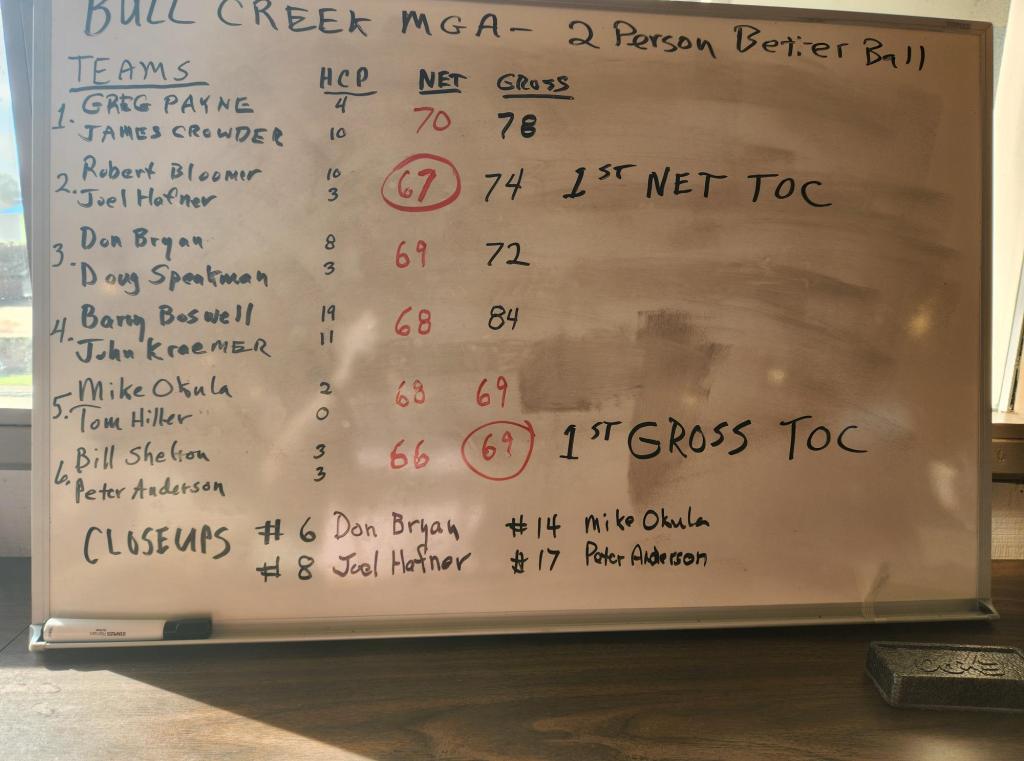 BULL CREEK MGA - 2 Person Better Ball
TEAMS HCP NET GROSS
1. GREG PAYNE 4
JAMES CROWDER 10 70 78
2. Robert Bloomer 10
Joel Hafner 3 67 74 1ST NET TOC
3. Don Bryan 8 69 72
Doug Speakman 3
4. Barry Boswell 19 68 84
John KraeMER 11
5. Mike Okula 2 68 69
Tom Hiller 0
6. Bill Shelton 3 66 69 1ST GROSS TOC
Peter Anderson 3
CLOSEUPS # 6 Don Bryan # 14 Mike Okula
# 8 Joel Hafner # 17 Peter Anderson
EXPO